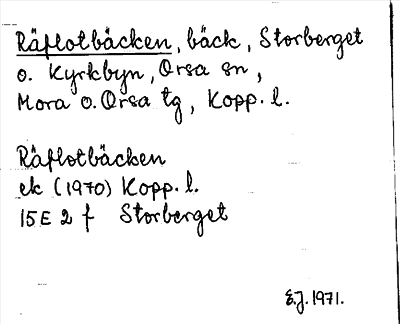 Räflotbäcken, bäck, Storberget
o. Kyrkbyn, Orsa sn,
Mora o. Orsa tg, Kopp. l.
Räflotbäcken
ek (1970) Kopp. l.
15E 2 f Storberget
E.J. 1971.